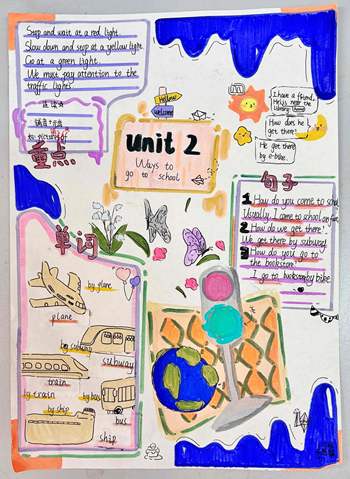 Stop and wait at a red light.
Slow down and stop at a yellow light.
Go at a green light.
We must pay attention to the
traffic lights.
重点
Hellow
welcome
unit 2
Ways to
go to school
I have a friend.
He is near the
How does he
get there?
He get there
by e-bike.
句子
1 How do you come to school
Usually I come to school on foot
2 How do we get there?
We get there by subway
3 How do you go to
the bookstore
I go to bookstore by bike
单词
by plane
plane
by subway
subway
train
by train
by bus
bus
by ship
ship